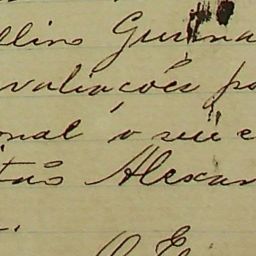 llino Guima
valiações po
onal o seu e
tão Alexan